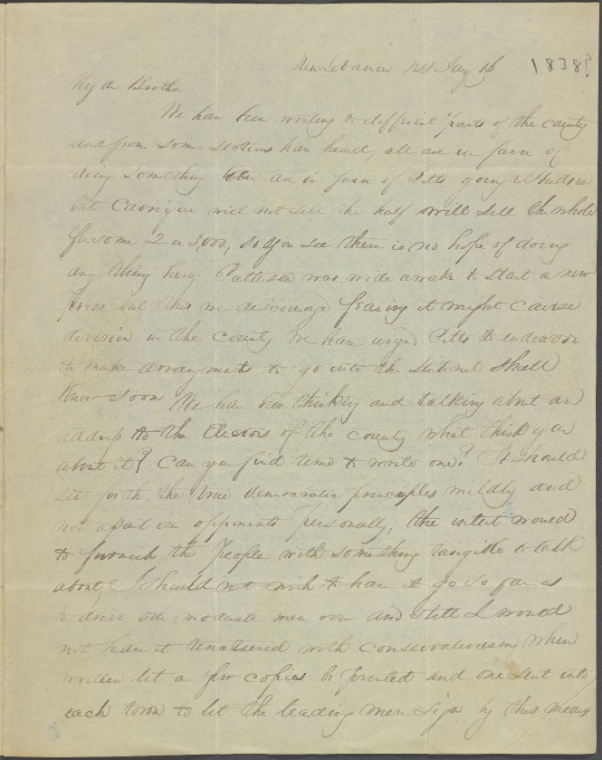 New Lebanon Jany 16 1838?
My dr Brother
We have been writing to different parts of the county
and from some sections have heard, all are in favor of
doing something are in favor of Pitts going to Hudson
but will not sell the half will sell the whole
for some 2 or 3,000, so you see there is no hope of doing
any thing here Pattison was wide awake to start a new
press but this we discourage fearing it might cause
division in the County We have urged Pitts to endeavor
to make arrangmets to go into the Sentinel Shall
know soon We have been thinking and talking about an
address to the Electors of the county what think you
about it? Can you find time to write one? It should
set forth the true democratic principles mildly and
not assail our opponents personally, the intent would
to furnish the People with something tangible to talk
about, I should not wish to have it go so far as
to drive off moderate men over and still I would
not have it tinctured with conservativism, when
written let a few copies be printed and one sent into
each town to let the leading men sign by this means